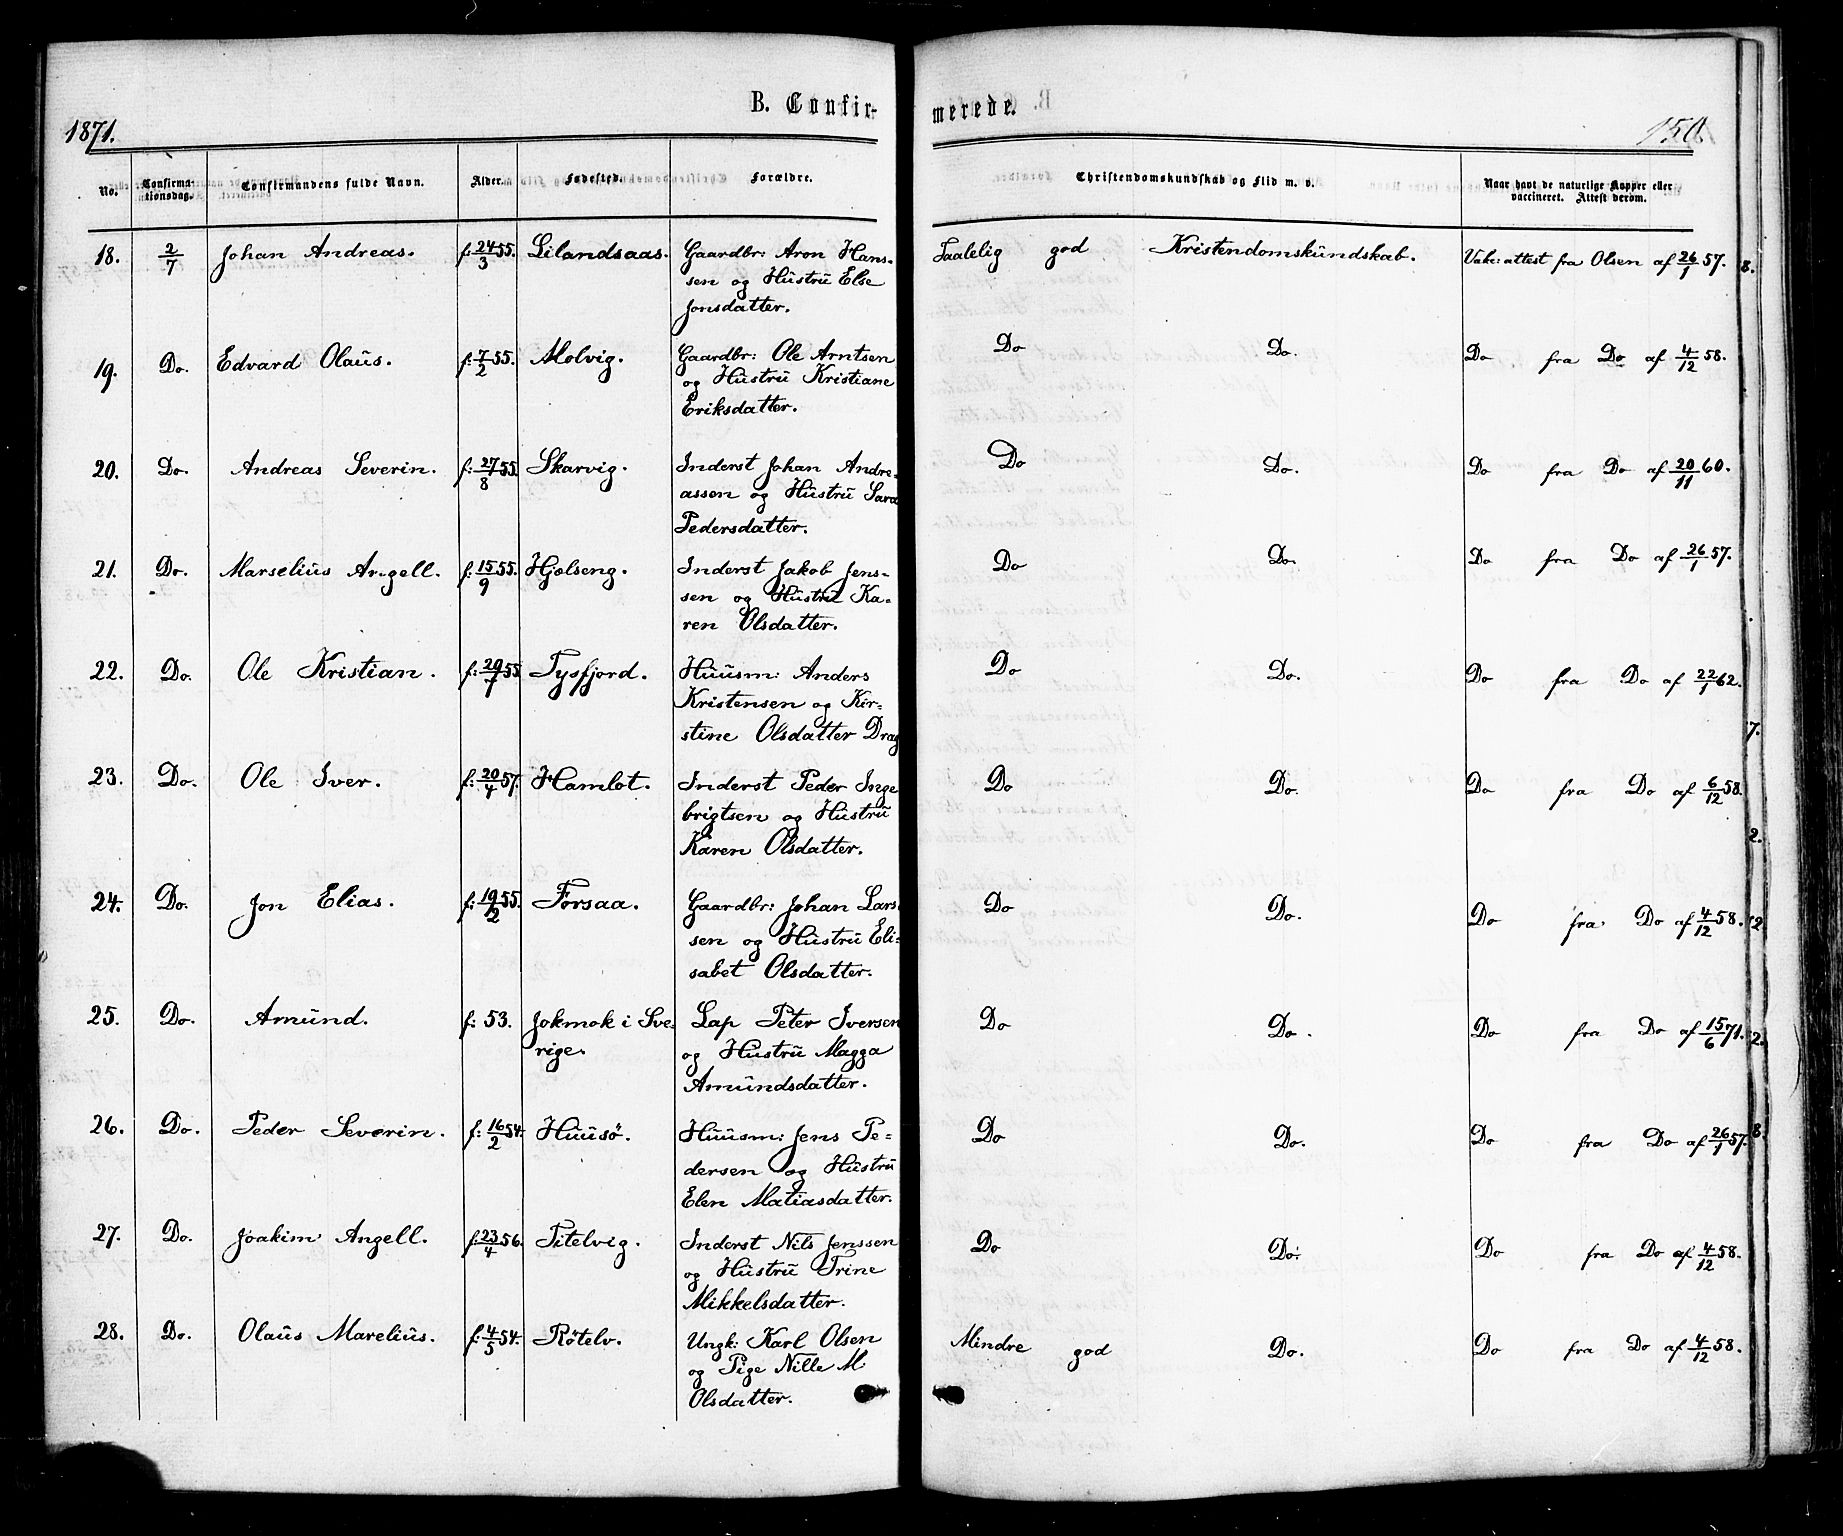 1871.
B. Confir-
merede.
150.
No. Confirma-tionsdag. Confirmandens fulde Navn. Alder. Fødested. Forældre. Christendomskundskab og Flid m. v. Naar havt de naturlige Kopper eller vaccineret. Attest derom.
18. 2/7 Johan Andreas. f: 24/3 55. Lilandsaas. Gaardbr: Aron Hans- Taalelig god Kristendomskundskab. Vakc: attest fra Olsen af 26/1 57.
sen og Hustrü Else
Jonsdatter.
19. Do. Edvard Olaüs. f: 7/2 55. Molvig. Gaardbr: Ole Arntsen Do Do. Do fra Do af 4/12 58.
og Hustrü Kristiane
Eriksdatter.
20. Do. Andreas Severin. f: 27/8 55. Skarvig. Inderst Johan Andre- Do Do. Do fra Do af 20/11 60.
assen og Hüstrü Sara
Pedersdatter.
21. Do. Marselius Angell. f: 15/9 55. Hjelseng. Inderst Jakob Jens- Do Do. Do fra Do af 26/1 57.
sen og Hüstrü Ka-
ren Olsdatter.
22. Do. Ole Kristian. f: 20/7 55 Tysfjord. Huusm: Anders Do Do. Do fra Do af 22/1 62.
Kristensen og Kir-
stine Olsdatter Drag
23. Do. Ole Iver. f: 20/4 57. Hamlot. Inderst Peder Inge Do Do. Do fra Do af 6/12 58.
brigtsen og Hüstrü
Karen Olsdatter.
24. Do. Jon Elias. f: 19/2 55. Forsaa. Gaardbr: Johan Lars Do Do. Do fra Do af 4/12 58.
sen og Hüstrü Eli-
sabet Olsdatter.
25. Do. Amünd. f: 53. Jokmok i Sve- Lap Peter Iversen Do Do. Do fra Do af 15/6 71.
rige. og Hustrü Magga
Amündsdatter.
26. Do. Peder Severin. f: 16/2 54. Huusö. Huusm: Jens Pe- Do Do. Do fra Do af 26/1 57.
dersen og Hüstrü
Elen Matiasdatter.
27. Do. Joakim Angell. f: 23/4 56. Titelvig. Inderst Nils Jenssen Do Do. Do fra Do af 4/12 58.
og Hüstrü Trine
Mikkelsdatter.
28. Do. Olaüs Marelius. f: 4/5 54. Rötelv. Ungk: Karl Olsen Mindre god Do. Do fra Do af 4/12 58.
og Pige Nille M.
Olsdatter.